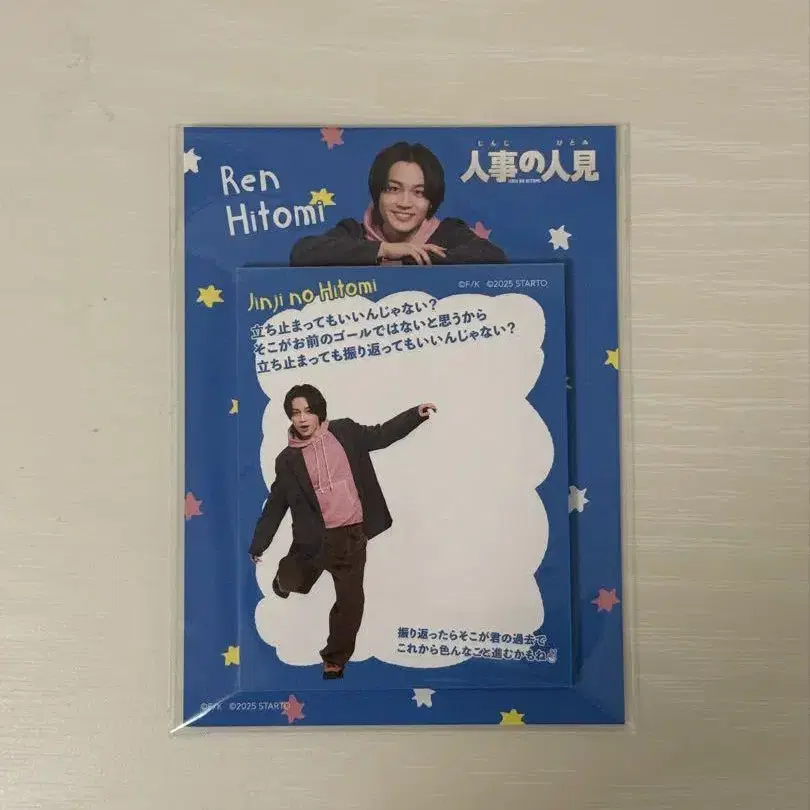 Ren
Hitomi
じんじ ひとみ
人事の人見
JINJI NO HITOMI
Jinji no Hitomi
©F/K ©2025 STARTO
立ち止まってもいいんじゃない？
そこがお前のゴールではないと思うから
立ち止まっても振り返ってもいいんじゃない？
振り返ったらそこが君の過去で
これから色んなこと進むかもね✌
©F/K ©2025 STARTO